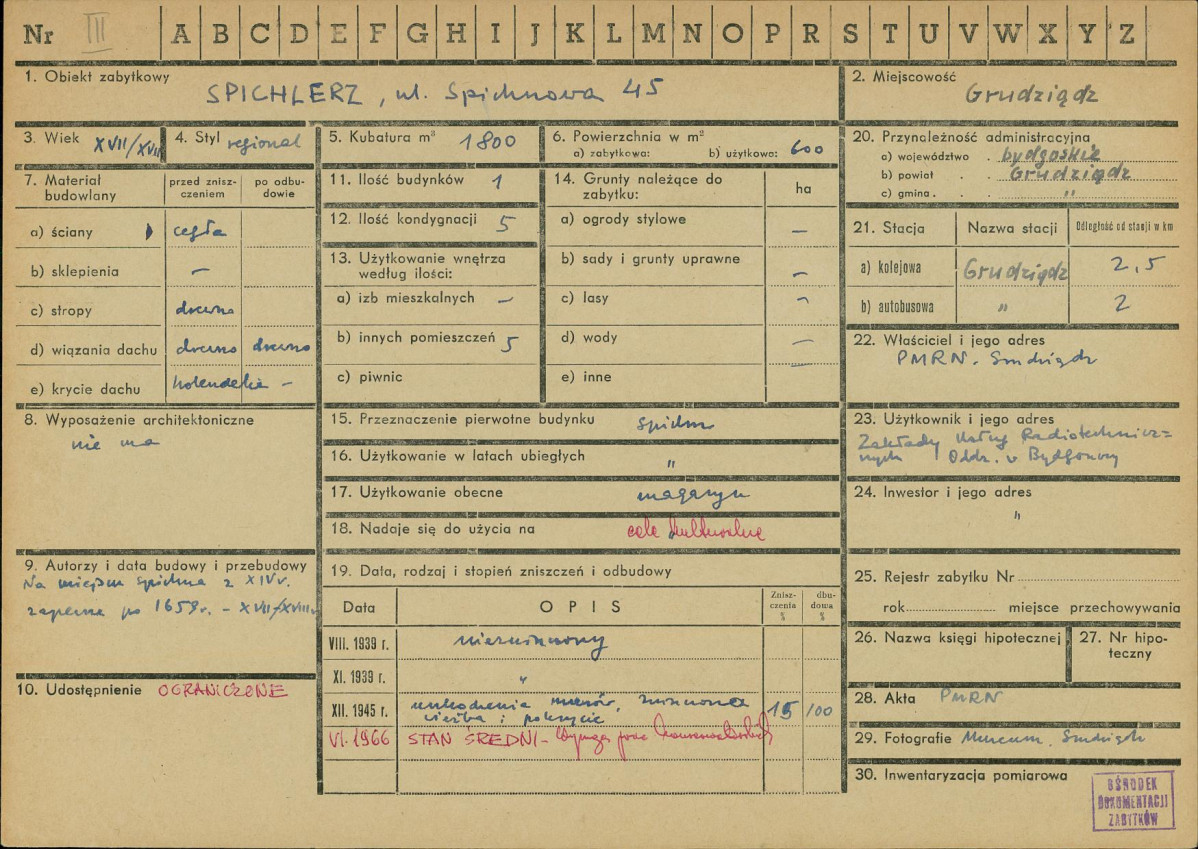 Nr III A B C D E F G H I J K L M N O P R S T U V W X Y Z
1. Obiekt zabytkowy
SPICHLERZ, ul. Spichrzowa 45
2. Miejscowość
Grudziądz
3. Wiek XVII/XVIII
4. Styl regional
5. Kubatura m³ 1800
6. Powierzchnia w m²
a) zabytkowa: b) użytkowa: 600
20. Przynależność administracyjna
a) województwo . bydgoskie
b) powiat . . Grudziądz
c) gmina . . "
7. Materiał budowlany
przed zniszczeniem
po odbudowie
a) ściany cegła
b) sklepienia —
c) stropy drewno
d) wiązania dachu drewno drewno
e) krycie dachu holenderka —
11. Ilość budynków 1
12. Ilość kondygnacji 5
13. Użytkowanie wnętrza
według ilości:
a) izb mieszkalnych —
b) innych pomieszczeń 5
c) piwnic
14. Grunty należące do
zabytku:
ha
a) ogrody stylowe —
b) sady i grunty uprawne —
c) lasy —
d) wody —
e) inne —
21. Stacja Nazwa stacji Odległość od stacji w km
a) kolejowa Grudziądz 2,5
b) autobusowa " 2
22. Właściciel i jego adres
PMRN. Grudziądz
8. Wyposażenie architektoniczne
nie ma
15. Przeznaczenie pierwotne budynku spichrz
16. Użytkowanie w latach ubiegłych "
17. Użytkowanie obecne magazyn
18. Nadaje się do użycia na cele kulturalne
23. Użytkownik i jego adres
Zakłady Usług Radiotechnicz=
nych Oddz. w Bydgoszczy
24. Inwestor i jego adres
"
9. Autorzy i data budowy i przebudowy
Na miejscu spichrza z XIV w.
zapewne po 1659 r. - XVII/XVIII w
19. Data, rodzaj i stopień zniszczeń i odbudowy
Data OPIS Zniszczenia % dbudowa %
VIII. 1939 r. niezniszczony
XI. 1939 r. "
XII. 1945 r. uszkodzenia murów, zniszczona
więźba i pokrycie 15 100
VI. 1966 STAN ŚREDNI - Wymaga prac konserwatorskich
25. Rejestr zabytku Nr
rok miejsce przechowywania
26. Nazwa księgi hipotecznej
27. Nr hipoteczny
10. Udostępnienie OGRANICZONE
28. Akta PMRN
29. Fotografie Muzeum, Grudziądz
30. Inwentaryzacja pomiarowa
OŚRODEK
DOKUMENTACJI
ZABYTKÓW